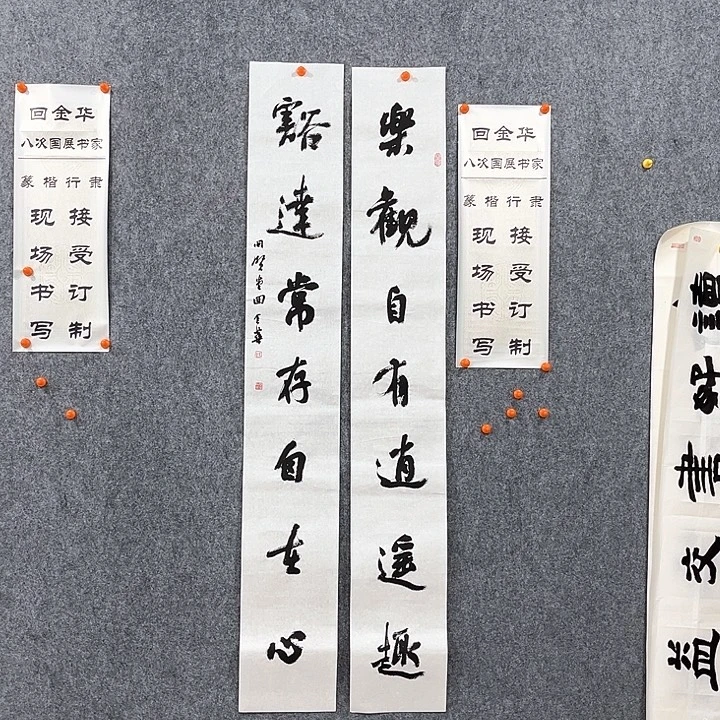 回金华
八次国展书家
篆楷行隶
现场书写
接受订制
樂觀自有逍遥趣
豁達常存自在心
回金華
回金华
八次国展书家
篆楷行隶
现场书写
接受订制
讀好書交益